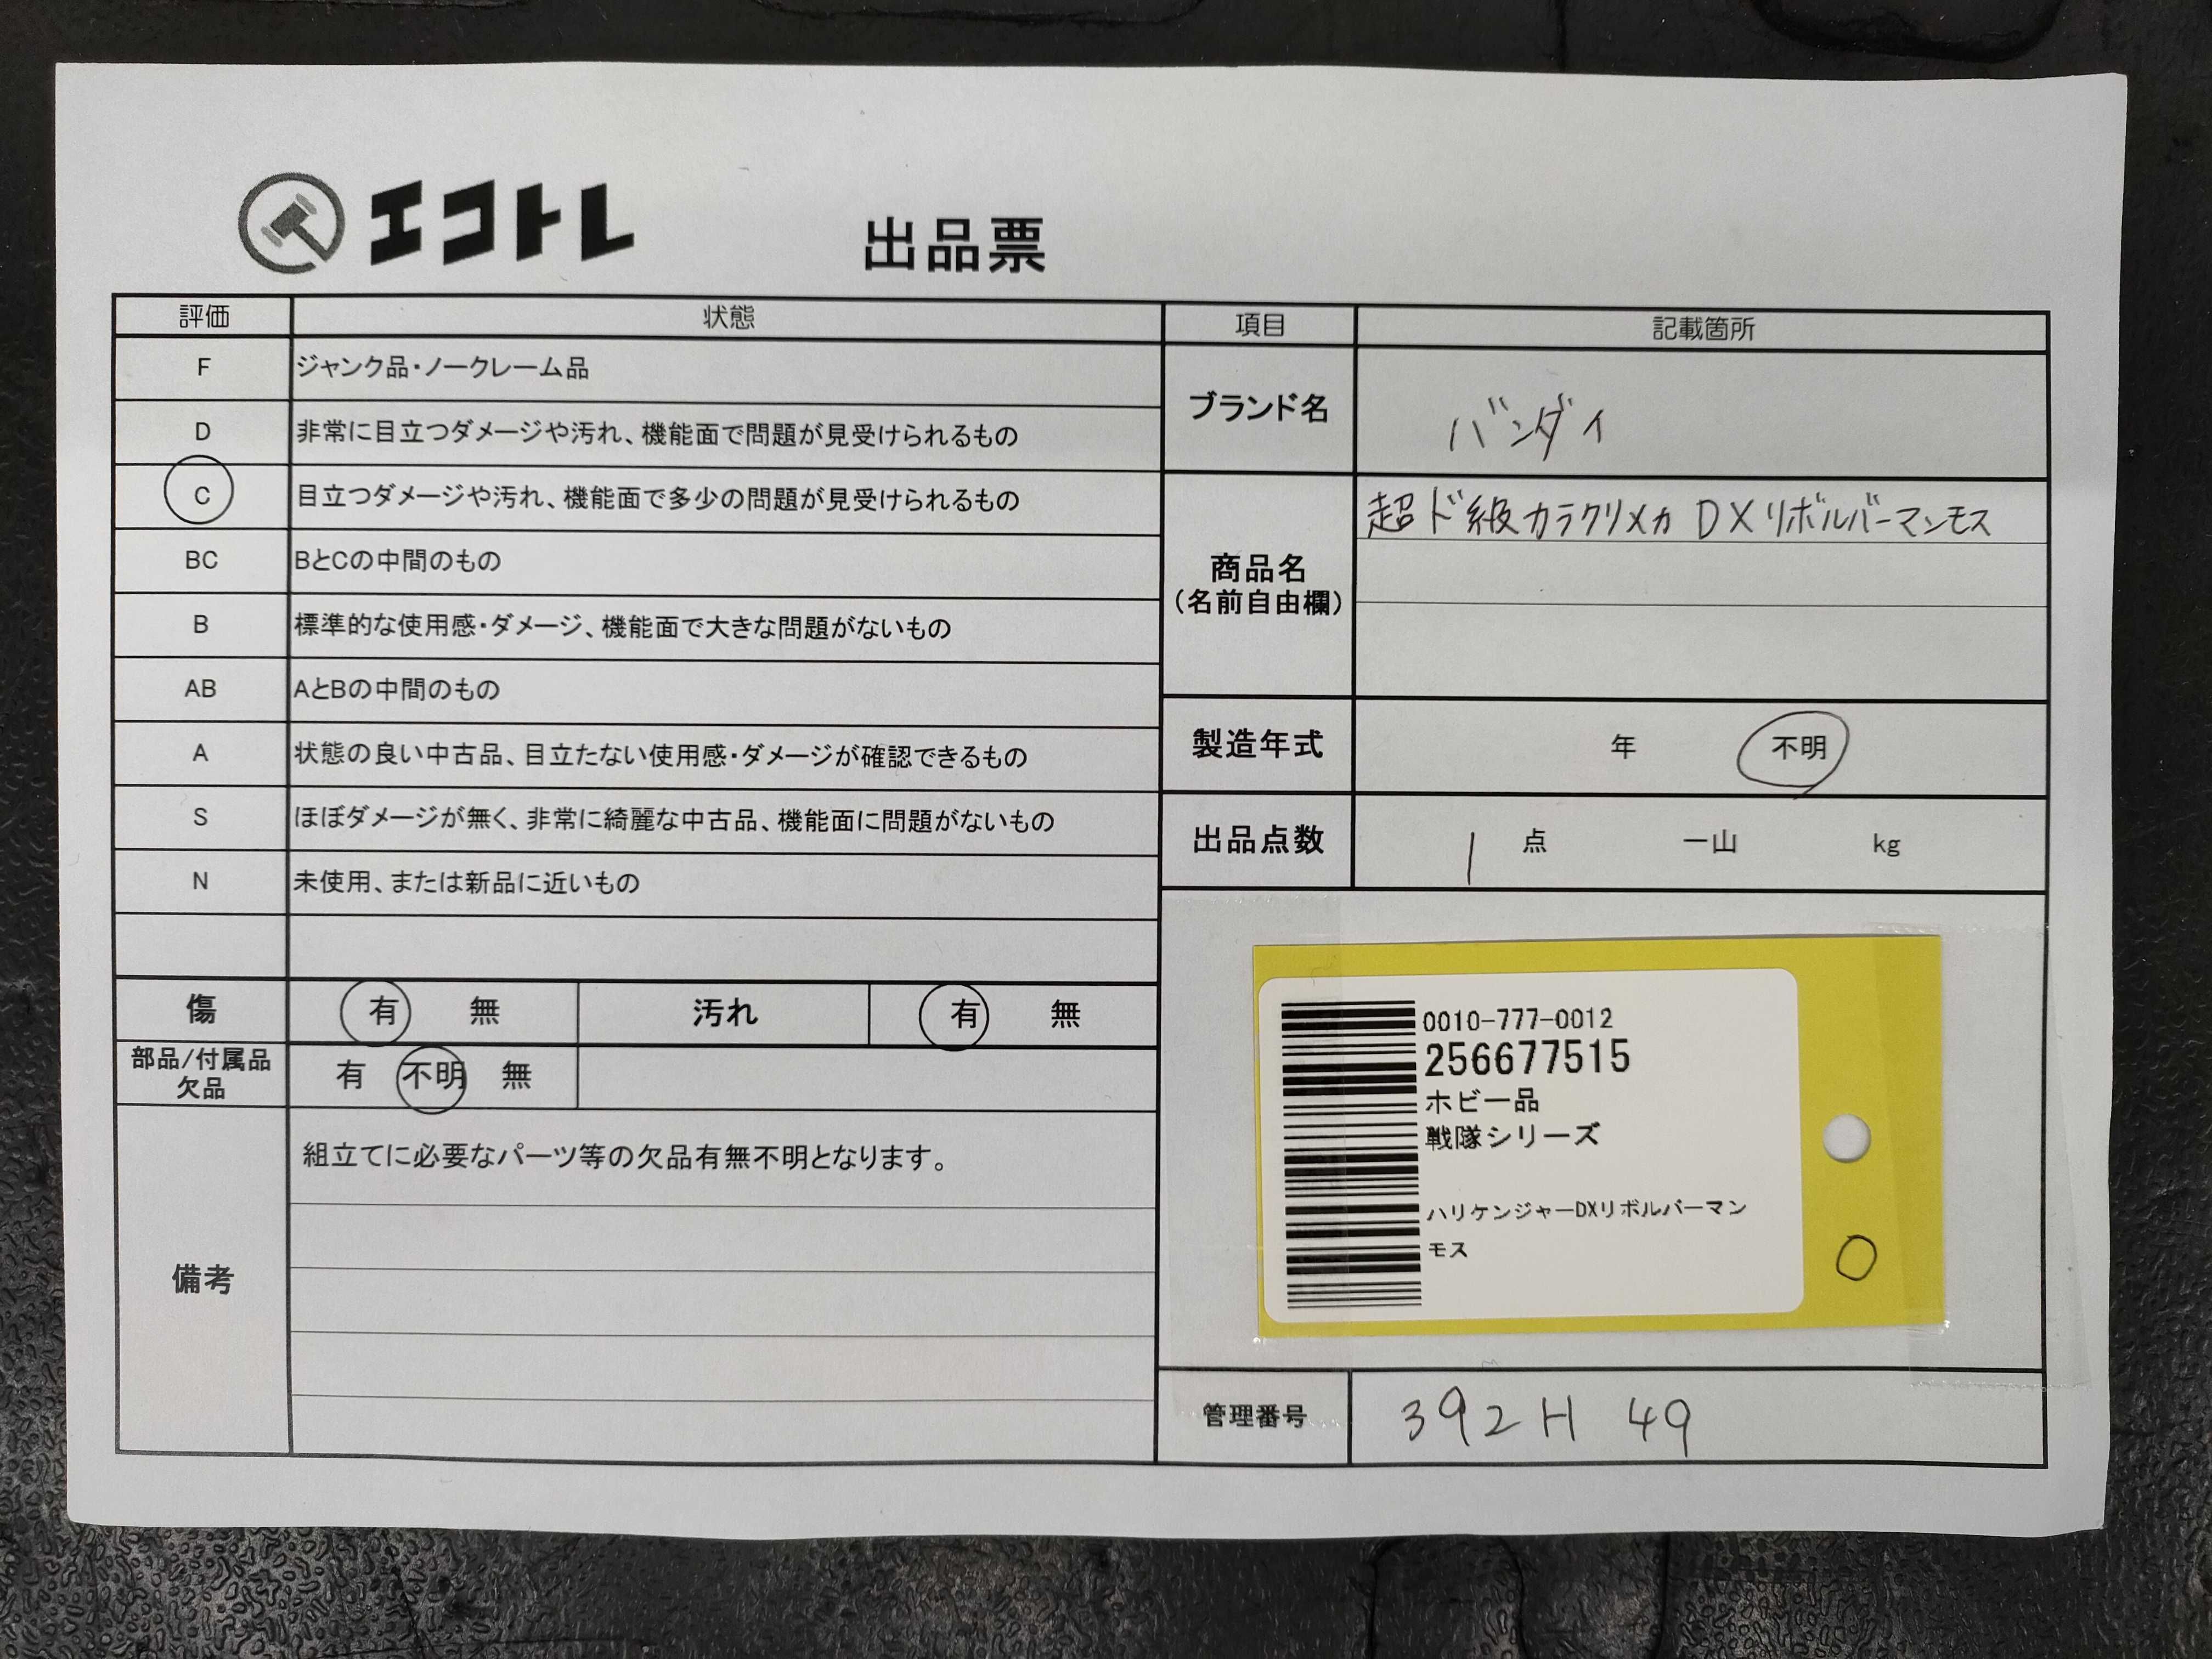 エコトレ
出品票
評価 状態
F ジャンク品・ノークレーム品
D 非常に目立つダメージや汚れ、機能面で問題が見受けられるもの
C 目立つダメージや汚れ、機能面で多少の問題が見受けられるもの
BC BとCの中間のもの
B 標準的な使用感・ダメージ、機能面で大きな問題がないもの
AB AとBの中間のもの
A 状態の良い中古品、目立たない使用感・ダメージが確認できるもの
S ほぼダメージが無く、非常に綺麗な中古品、機能面に問題がないもの
N 未使用、または新品に近いもの
傷 有 無 汚れ 有 無
部品/付属品
欠品
有 不明 無
備考
組立てに必要なパーツ等の欠品有無不明となります。
項目 記載箇所
ブランド名 バンダイ
商品名
(名前自由欄)
超ド級カラクリメカ DXリボルバーマンモス
製造年式 年 不明
出品点数 1 点 一山 kg
0010-777-0012
256677515
ホビー品
戦隊シリーズ
ハリケンジャーDXリボルバーマン
モス
管理番号 392H 49